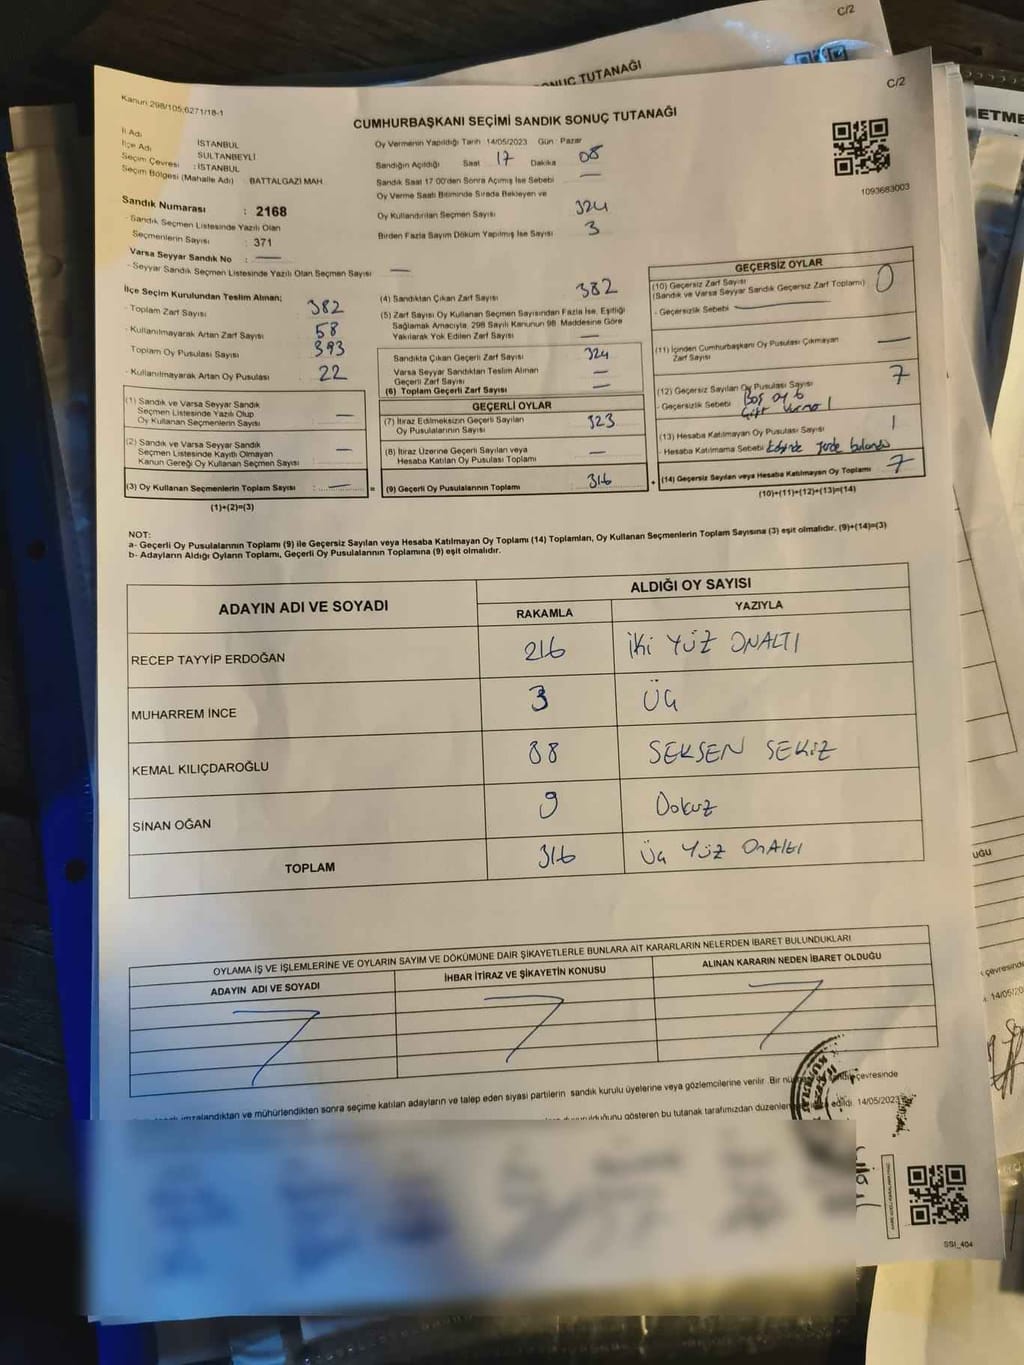 C/2
SONUÇ TUTANAĞI
C/2
Kanun:298/105,6271/18-1
CUMHURBAŞKANI SEÇİMİ SANDIK SONUÇ TUTANAĞI
İl Adı : İSTANBUL
İlçe Adı : SULTANBEYLİ
Seçim Çevresi : İSTANBUL
Seçim Bölgesi (Mahalle Adı) : BATTALGAZİ MAH.
Sandık Numarası : 2168
- Sandık Seçmen Listesinde Yazılı Olan
Seçmenlerin Sayısı : 371
Varsa Seyyar Sandık No : —
- Seyyar Sandık Seçmen Listesinde Yazılı Olan Seçmen Sayısı —
Oy Vermenin Yapıldığı Tarih 14/05/2023 Gün : Pazar
Sandığın Açıldığı Saat 17 Dakika 08
Sandık Saat 17:00'den Sonra Açımış İse Sebebi —
Oy Verme Saati Bitiminde Sırada Bekleyen ve
Oy Kullandırılan Seçmen Sayısı 324
Birden Fazla Sayım Döküm Yapılmış İse Sayısı 3
1093683003
İlçe Seçim Kurulundan Teslim Alınan;
- Toplam Zarf Sayısı 382
- Kullanılmayarak Artan Zarf Sayısı 58
Toplam Oy Pusulası Sayısı 393
- Kullanılmayarak Artan Oy Pusulası 22
(1) Sandık ve Varsa Seyyar Sandık
Seçmen Listesinde Yazılı Olup
Oy Kullanan Seçmenlerin Sayısı —
(2) Sandık ve Varsa Seyyar Sandık
Seçmen Listesinde Kayıtlı Olmayan
Kanun Gereği Oy Kullanan Seçmen Sayısı —
(3) Oy Kullanan Seçmenlerin Toplam Sayısı : —
(1)+(2)=(3)
(4) Sandıktan Çıkan Zarf Sayısı 382
(5) Zarf Sayısı Oy Kullanan Seçmen Sayısından Fazla İse, Eşitliği
Sağlamak Amacıyla, 298 Sayılı Kanunun 98. Maddesine Göre
Yakılarak Yok Edilen Zarf Sayısı —
Sandıkta Çıkan Geçerli Zarf Sayısı 324
Varsa Seyyar Sandıktan Teslim Alınan
Geçerli Zarf Sayısı —
(6) Toplam Geçerli Zarf Sayısı —
GEÇERLİ OYLAR
(7) İtiraz Edilmeksizin Geçerli Sayılan
Oy Pusulalarının Sayısı 323
(8) İtiraz Üzerine Geçerli Sayılan veya
Hesaba Katılan Oy Pusulası Toplamı —
= (9) Geçerli Oy Pusulalarının Toplamı 316
GEÇERSİZ OYLAR
(10) Geçersiz Zarf Sayısı
(Sandık ve Varsa Seyyar Sandık Geçersiz Zarf Toplamı) 0
- Geçersizlik Sebebi —
(11) İçinden Cumhurbaşkanı Oy Pusulası Çıkmayan
Zarf Sayısı —
(12) Geçersiz Sayılan Oy Pusulası Sayısı 7
- Geçersizlik Sebebi Boş oy 6
Çift 1
(13) Hesaba Katılmayan Oy Pusulası Sayısı 1
- Hesaba Katılmama Sebebi
+ (14) Geçersiz Sayılan veya Hesaba Katılmayan Oy Toplamı 7
(10)+(11)+(12)+(13)=(14)
NOT:
a- Geçerli Oy Pusulalarının Toplamı (9) ile Geçersiz Sayılan veya Hesaba Katılmayan Oy Toplamı (14) Toplamları, Oy Kullanan Seçmenlerin Toplam Sayısına (3) eşit olmalıdır. (9)+(14)=(3)
b- Adayların Aldığı Oyların Toplamı, Geçerli Oy Pusulalarının Toplamına (9) eşit olmalıdır.
ADAYIN ADI VE SOYADI
ALDIĞI OY SAYISI
RAKAMLA YAZIYLA
RECEP TAYYİP ERDOĞAN 216 İKİ YÜZ ONALTI
MUHARREM İNCE 3 ÜÇ
KEMAL KILIÇDAROĞLU 88 SEKSEN SEKİZ
SİNAN OĞAN 9 Dokuz
TOPLAM 316 ÜÇ YÜZ OnAltı
OYLAMA İŞ VE İŞLEMLERİNE VE OYLARIN SAYIM VE DÖKÜMÜNE DAİR ŞİKAYETLERLE BUNLARA AİT KARARLARIN NELERDEN İBARET BULUNDUKLARI
ADAYIN ADI VE SOYADI İHBAR İTİRAZ VE ŞİKAYETİN KONUSU ALINAN KARARIN NEDEN İBARET OLDUĞU
imzalandıktan ve mühürlendikten sonra seçime katılan adayların ve talep eden siyasi partilerin sandık kurulu üyelerine veya gözlemcilerine verilir. Bir çevresinde
gösteren bu tutanak tarafımızdan edildi. 14/05/2023
SSI_404